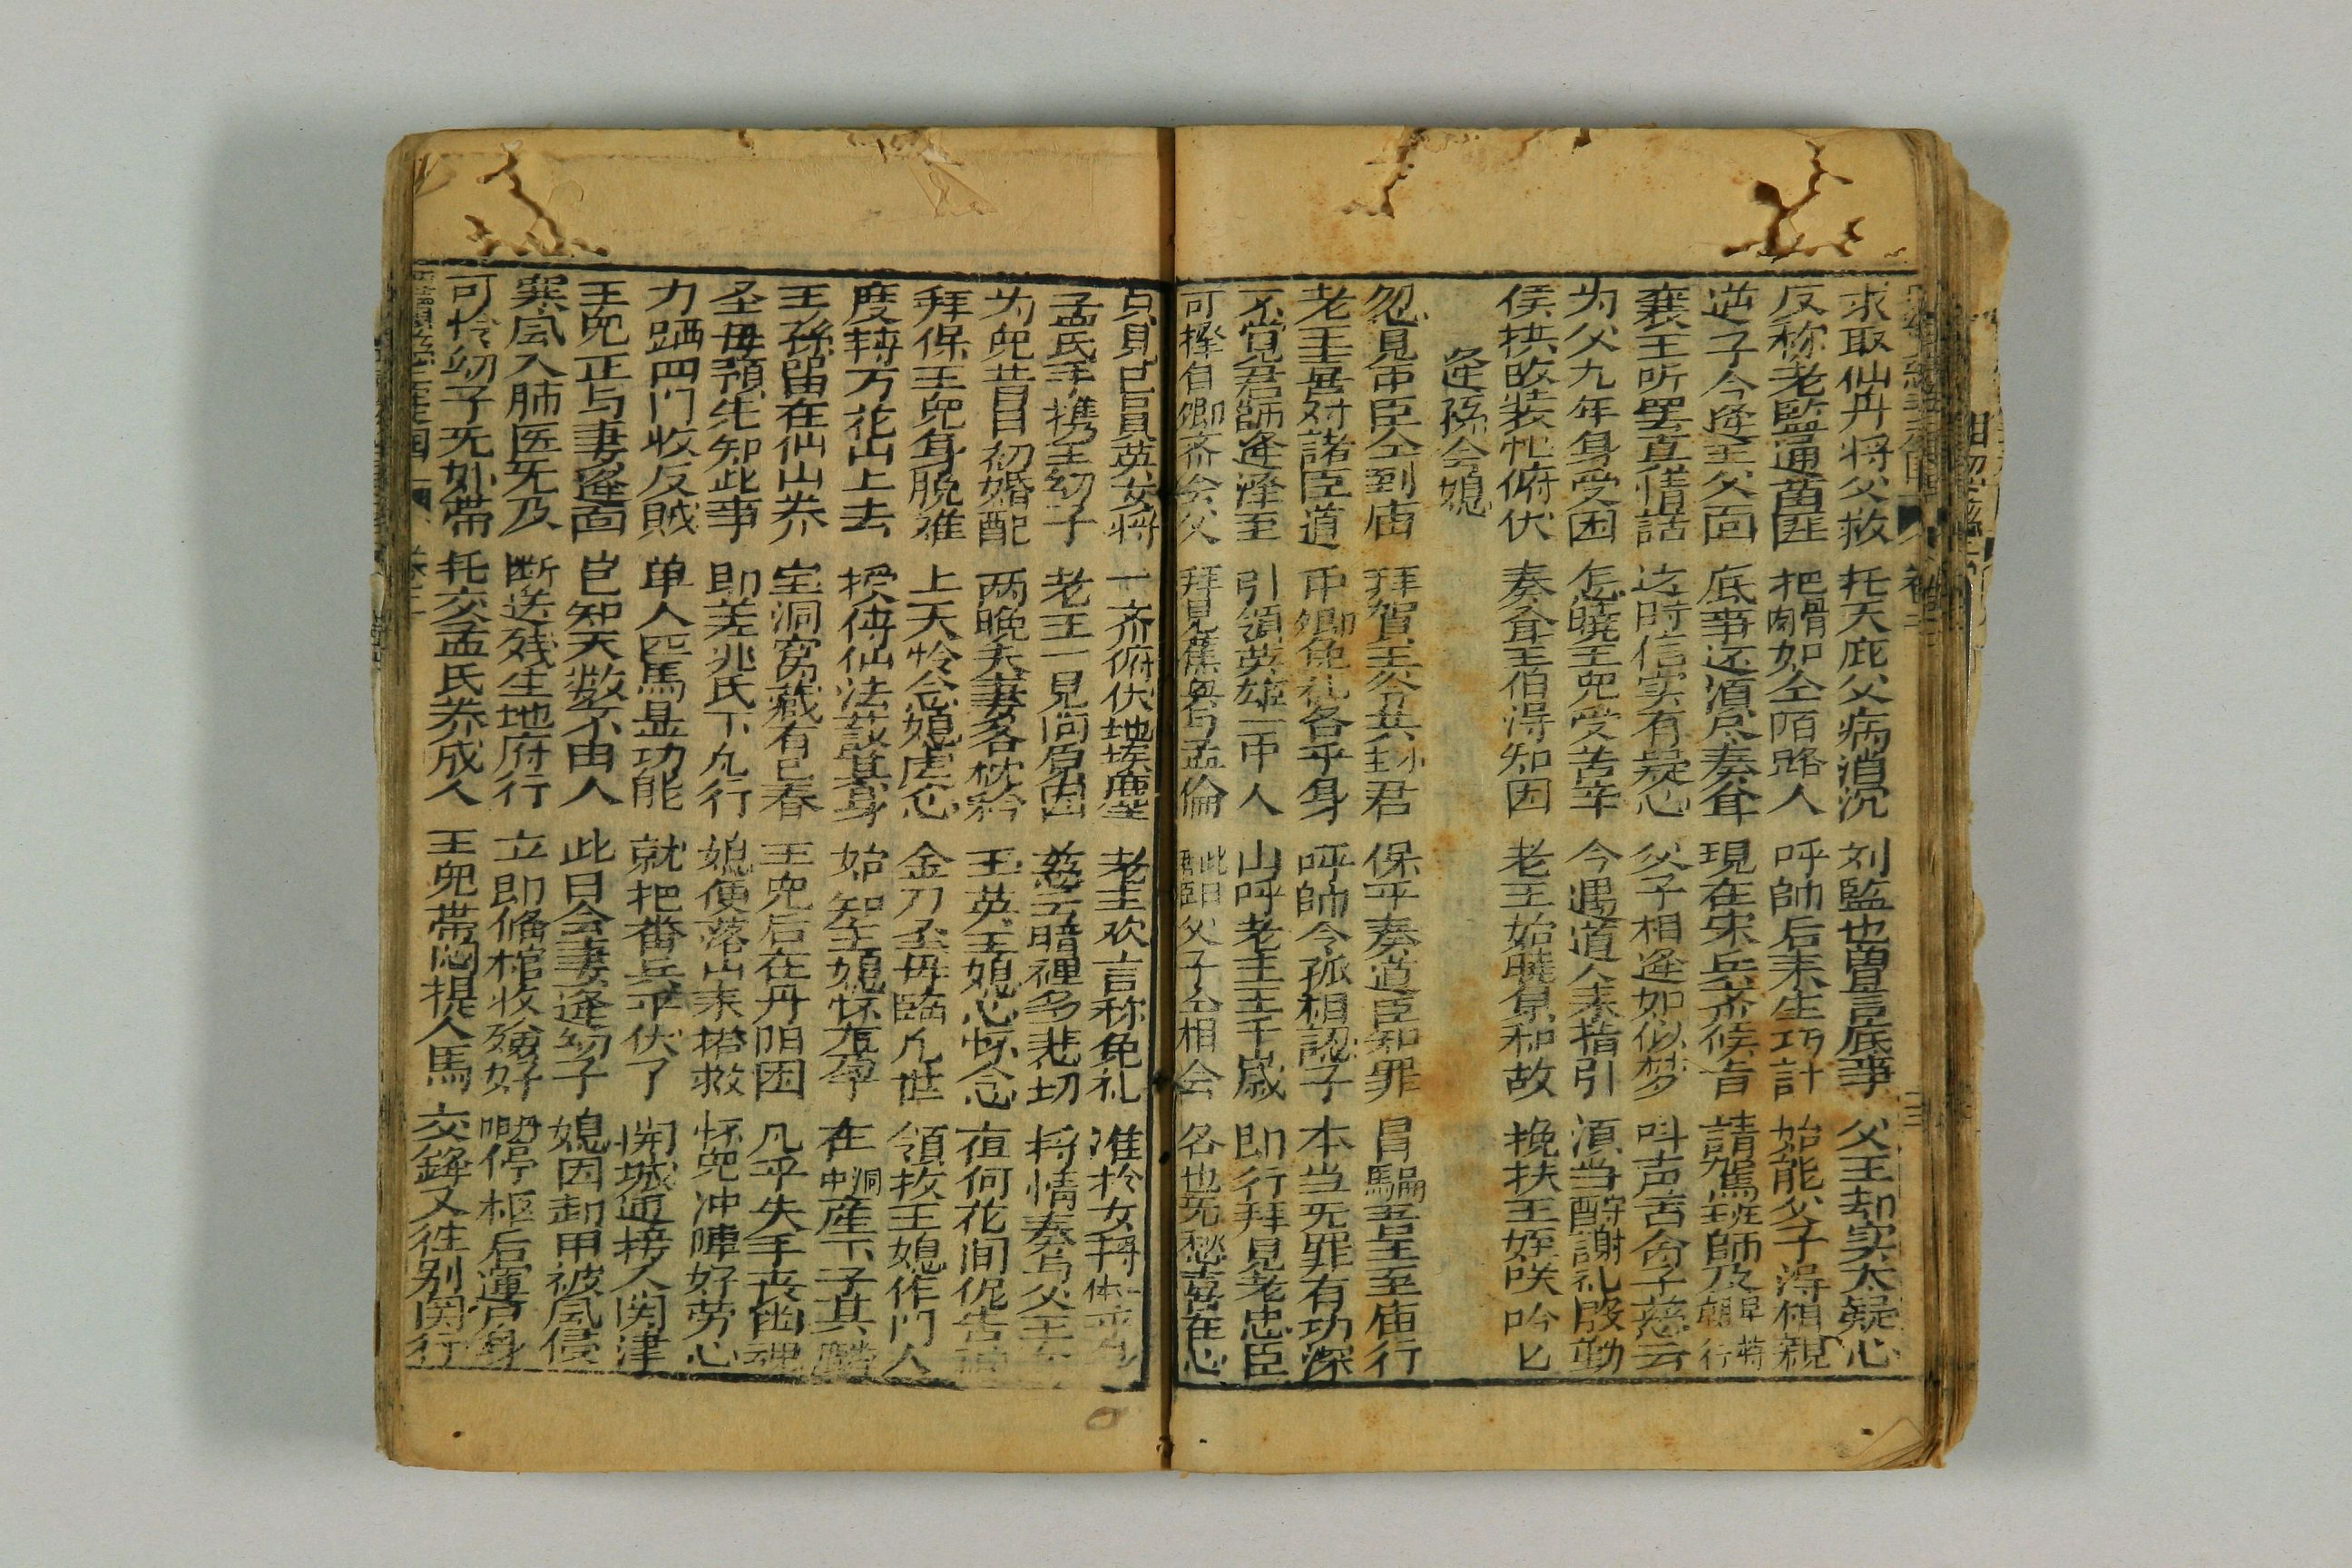 求取仙丹将父救 托天庇父病消沉 刘監也曽言底事 父王却实太疑心
反称老監通苗匪 把骨肉如仝陌路人 呼帥后来生巧計 始能父子淂相親
逆子今逢王父面 底事还湏尽奏耸 現在宋兵斎候旨 請駕班師及早轉朝行
襄王听罢真情話 这時信实有疑心 父子相逢如似梦 呌声舍子慈云
为父九年身受困 怎曉王児受苦辛 今遇道人来指引 湏当酧謝礼殷勤
侯拱收装忙俯伏 奏耸王伯淂知因 老王始曉原和故 挽扶王姪咲吟匕
逢孫会媳
忽見中臣仝到庙 拜賀王爷共小主君 保平奏道臣知罪 冒騙吾王至庙行
老王岂对諸臣道 中卿免礼各乎身 呼帥令孤相認子 本当无罪有功深
不觉君師逢泽至 引領英雄一中人 山呼老王王千歳 即行拜見老忠臣
可擇自卿斎会父 拜見蕉奥与孟倫 此日父子仝相会 各也无愁喜在心
只見吕貝英女将 一斉俯伏地埃塵 老主欢言称免礼 准拎女将体平身
孟氏手携王幼子 老王一見问原因 慈云暗裡多悲切 将情奏与父王
为児昔日初婚配 两晚夫妻多枕衿 玉英王媳心怀念 夜何花间伲告
拜保王児身脱难 上天怜念媳虔心 金刀圣母臨凡世 領抜王媳作门人
度轉万花山上去 授伝仙法設其身 始知王媳怀有孕 在洞中産下子其
王孫留在仙山养 宝洞窝藏有已春 王児后在丹阳困 凡乎失手丧幽魂
圣毋預先知此事 即差兆氏下凡行 媳便落山来搭救 怀児冲陣好劳心
力跴四门收反賊 单人匹馬显功能 就把番兵平伏了 開城迎接入関津
王児正与妻逢面 岂知天数不由人 此日会妻逢幼子 媳因卸甲被風侵
寒風入肺医无及 断送残生地府行 立即俻棺收殮好 丹阳停柩后運身
可怜幼子无奶帶 托交孟氏养成人 王児帶悶提人馬 交鋒又往别関行